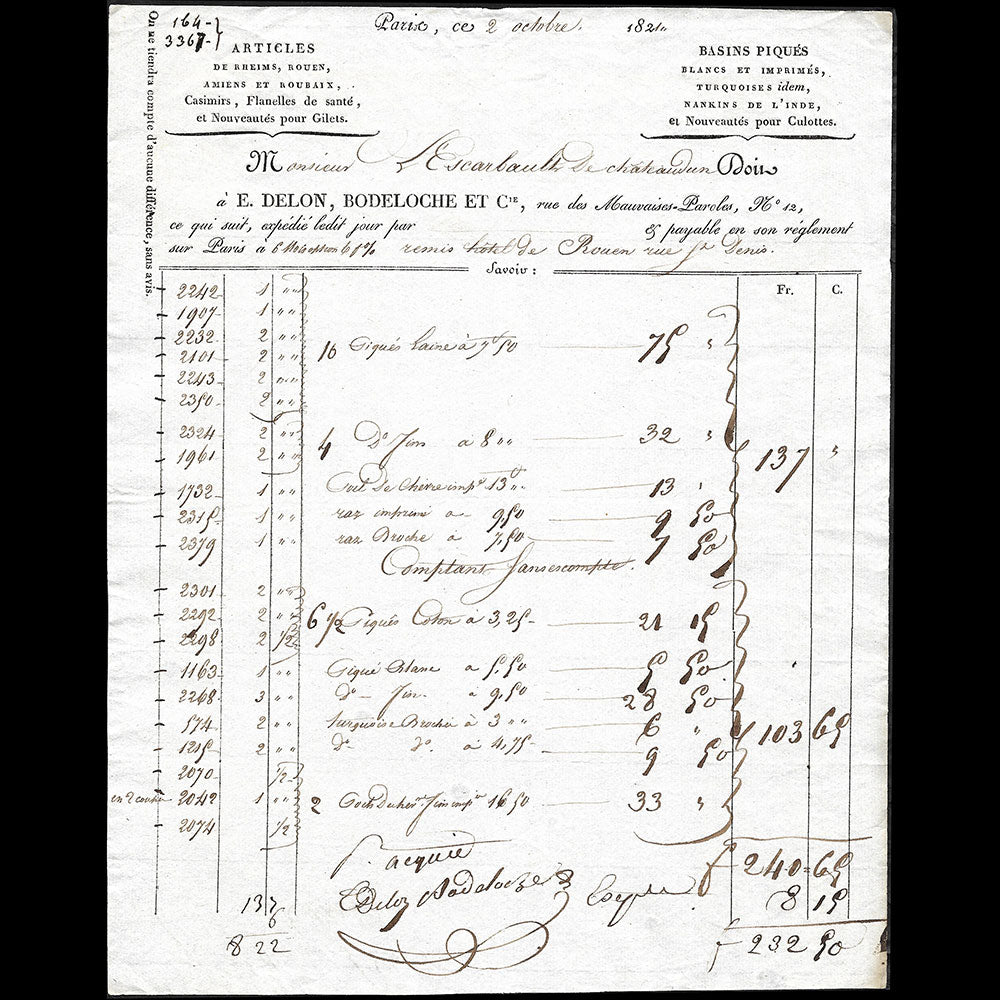 164-
3367-
Paris, ce 2 octobre. 1821.
On ne tiendra compte d'aucune différence, sans avis.
ARTICLES
DE RHEIMS, ROUEN,
AMIENS ET ROUBAIX,
Casimirs, Flanelles de santé,
et Nouveautés pour Gilets.
BASINS PIQUÉS
BLANCS ET IMPRIMÉS,
TURQUOISES idem,
NANKINS DE L'INDE,
et Nouveautés pour Culottes.
Monsieur L'Escarbault de chateaudun Doit
à E. DELON, BODELOCHE ET CIE, rue des Mauvaises-Paroles, N° 12,
ce qui suit, expédié ledit jour par & payable en son réglement
sur Paris à 6 Mois 6 % remis hotel de Rouen rue St Denis.
Savoir :
Fr. C.
2242 1 "
1907 1 "
2232 2 "
2101 2 " 10 Piqués laine à 7f 50 75 "
2243 2 "
2350 2 "
2324 2 " 4 Do fin à 8 " 32 "
1961 2 " 137 "
1732 1 " Poil de Chevre impé 13 " 13 "
2315 1 " raz imprimé à 9,50 9 50
2379 1 " raz Broché à 7,50 7 50
Comptant sans escompte.
2301 2 "
2292 2 " 6 1/2 Piqués Coton à 3,25 21 15
2298 2 1/2
1163 1 " Piqué Blanc à 5.50 5 50
2268 3 " do - fin à 9,50 28 50
574 2 " turquoise Brochée à 3 " 6 "
103 65
1215 2 " do do à 4,75 9 50
2070 1/2
en 2 coupes 2042 1 " 2 fin impr 16 50 33 "
2074 1/2
p. acquit
f 240 = 65
E Delon Bodeloche &
8 15
13
6
8 22
f 232 50